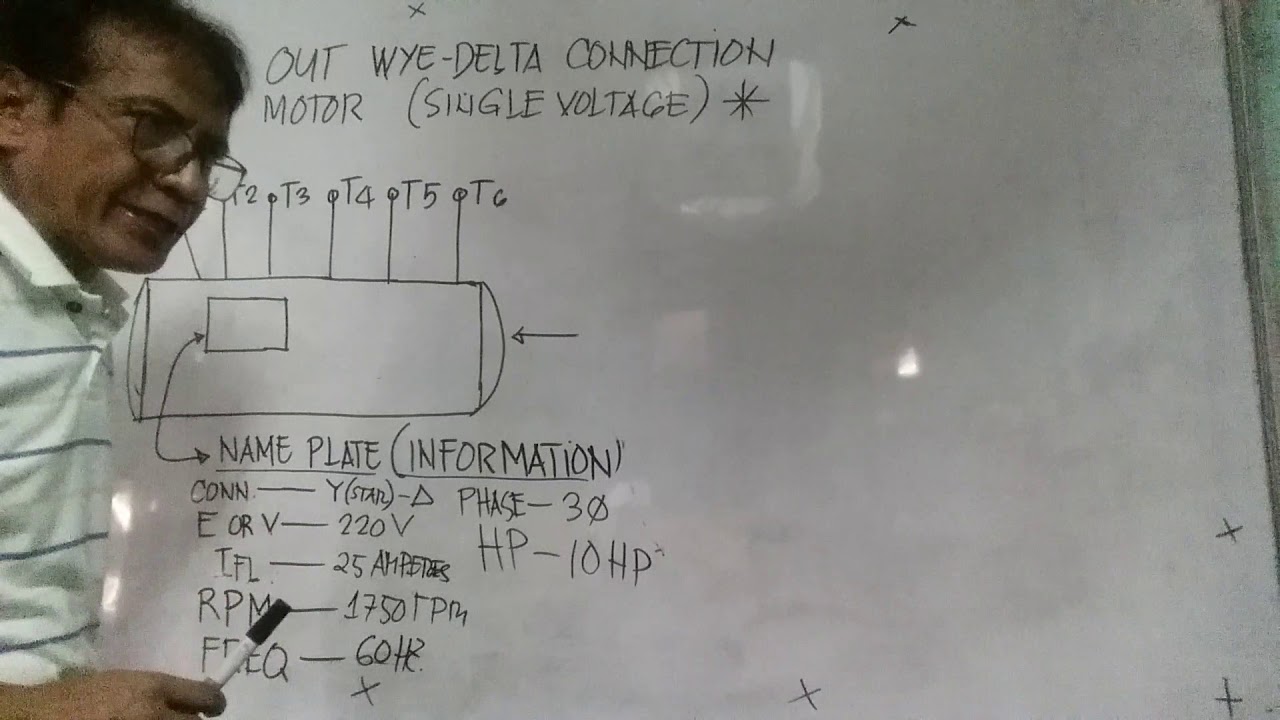 OUT WYE-DELTA CONNECTION
MOTOR (SINGLE VOLTAGE) *
T2 T3 T4 T5 T6
NAME PLATE (INFORMATION)
CONN. — Y(STAR)-Δ PHASE — 3Ø
E OR V — 220V
IFL — 25 AMPERES HP — 10HP
RPM — 1750rpm
FREQ — 60HZ